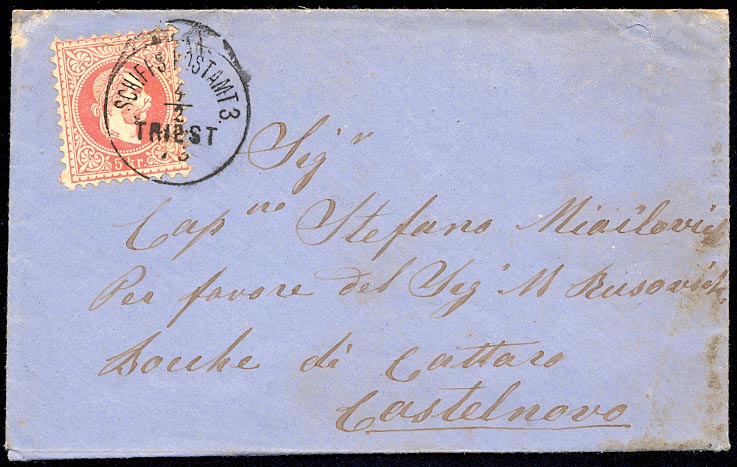 SCHIFFS POSTAMT 3.
4
2
TRIEST
5 kr.
Sigʳ
Capⁿᵒ Stefano Miailovich
Per favore del Sigʳ M Rusovich
Bocche di Cattaro
Castelnovo